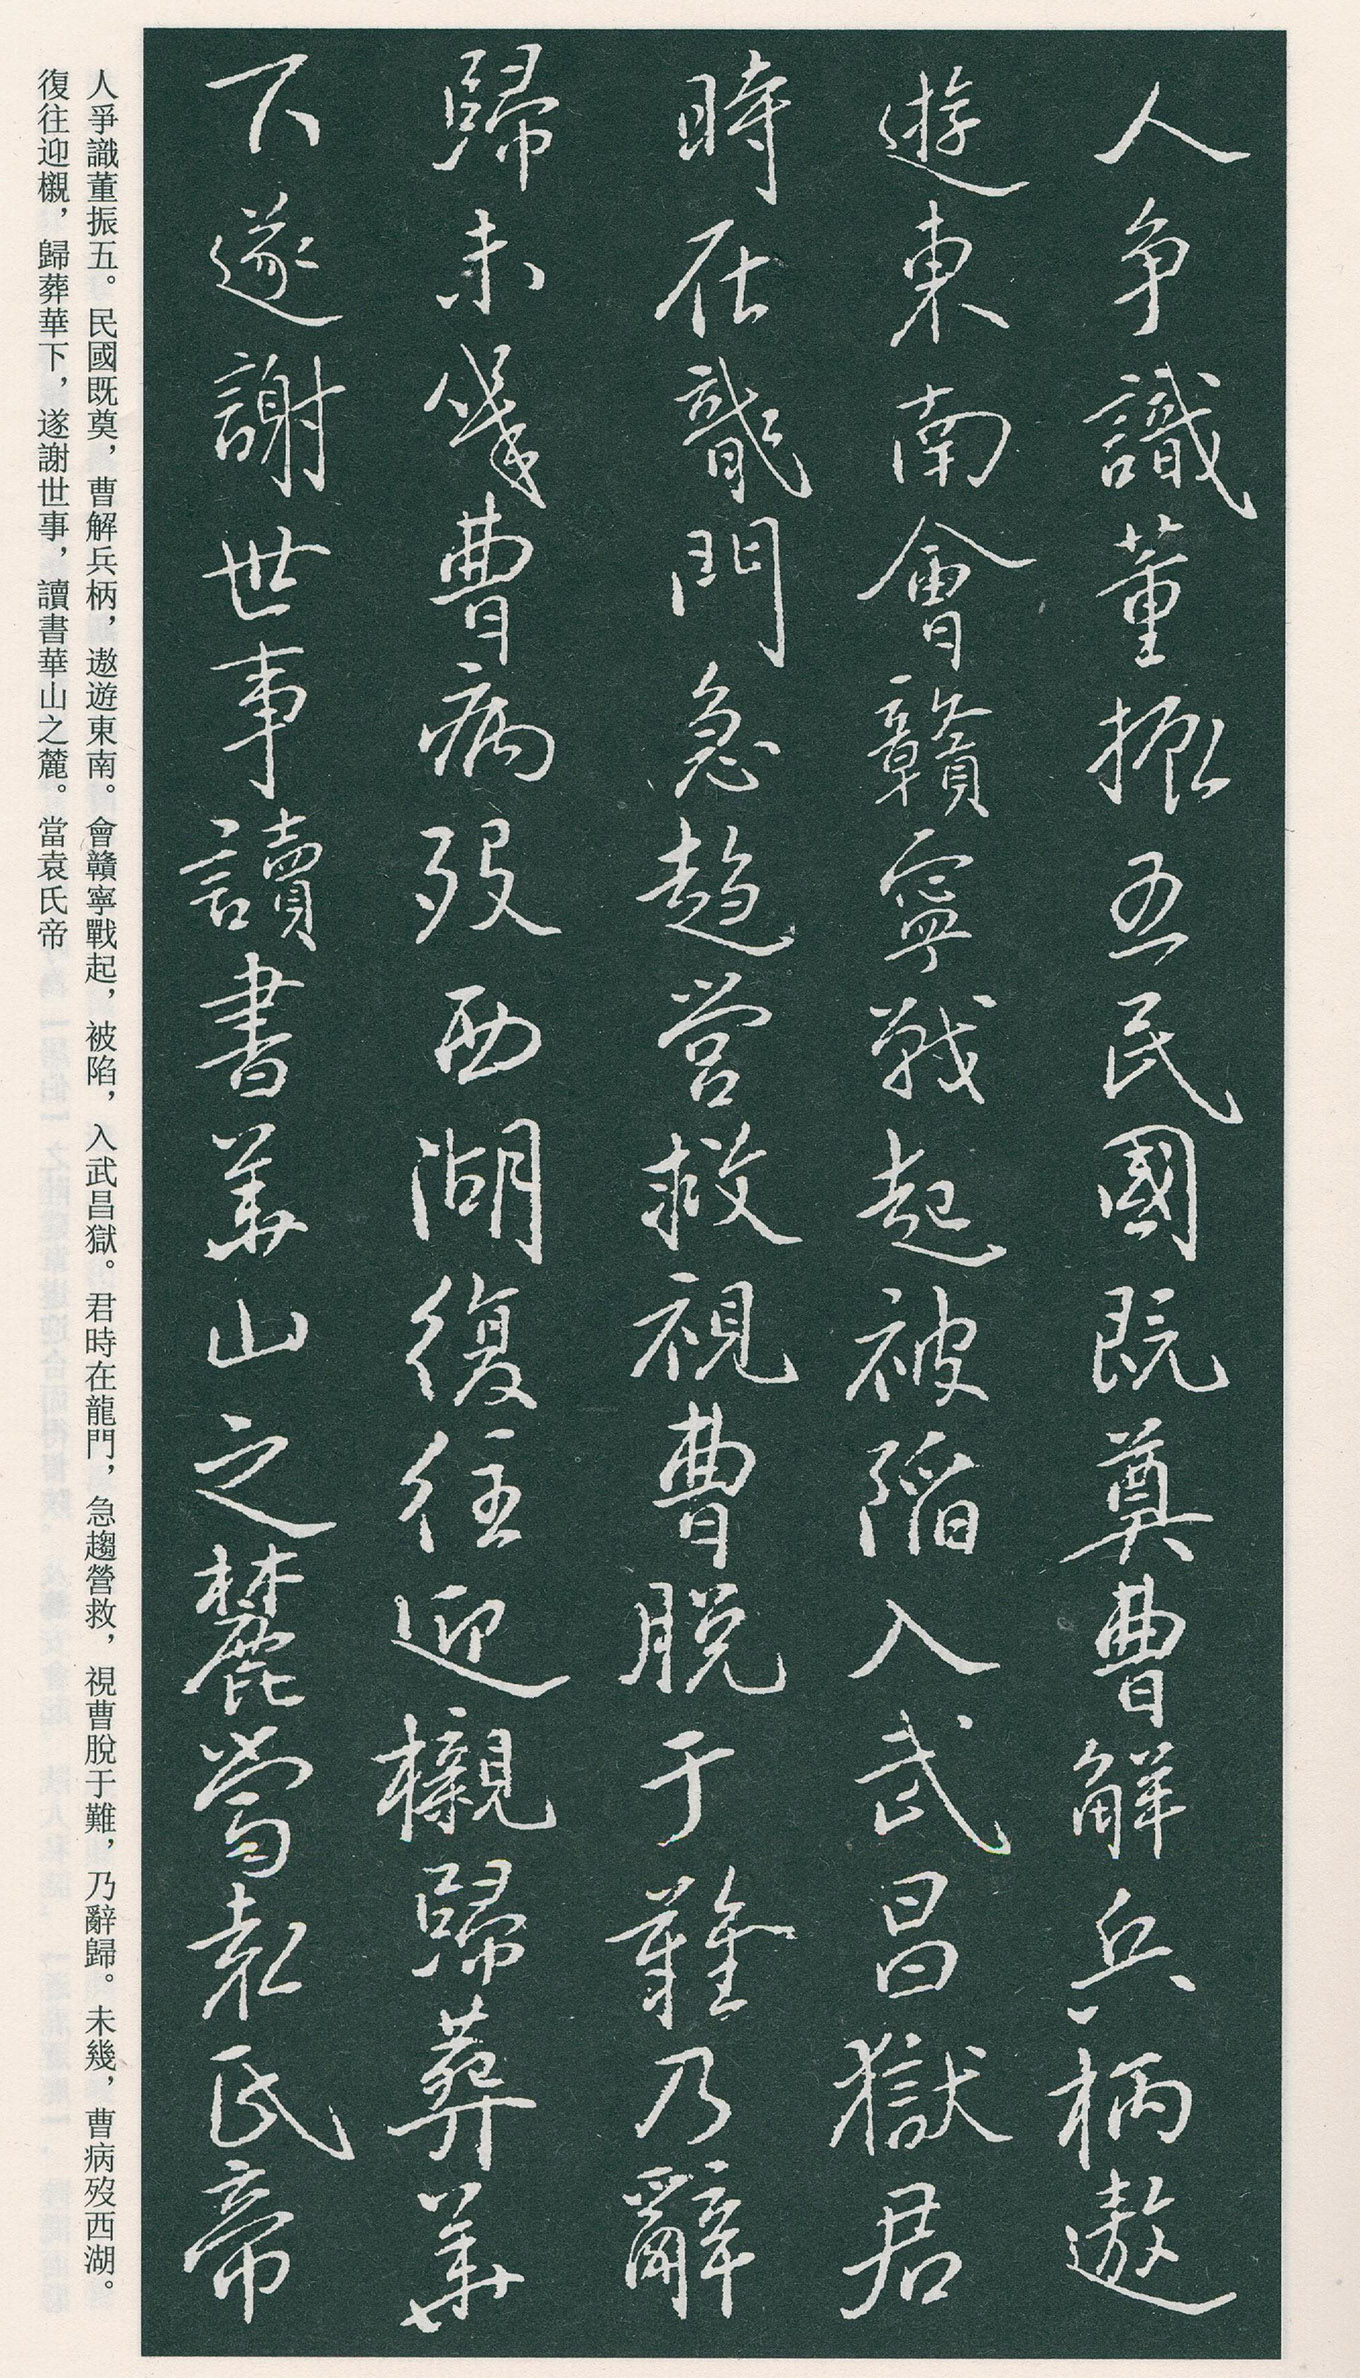 人爭識董振五民國既奠曹解兵柄遨
遊東南會贛寧戰起被陷入武昌獄君
時在龍門急趨營救視曹脫于難乃辭
歸未幾曹病歿西湖復往迎櫬歸葬華
下遂謝世事讀書華山之麓當袁氏帝
人爭識董振五。民國既奠，曹解兵柄，遨遊東南。會贛寧戰起，被陷，入武昌獄。君時在龍門，急趨營救，視曹脫于難，乃辭歸。未幾，曹病歿西湖。
復往迎櫬，歸葬華下，遂謝世事，讀書華山之麓。當袁氏帝